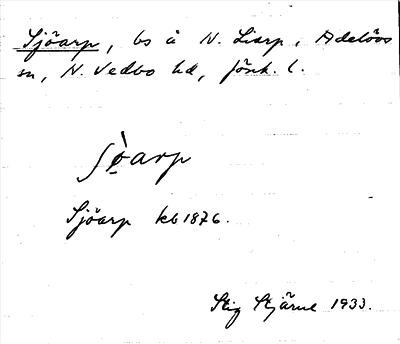 Sjöarp, bs å N. Liarp, Adelövs
sn, N. Vedbo hd, Jönk. l.
ʃø̀arp
Sjöarp kb 1876.
Stig Stjärne 1933.